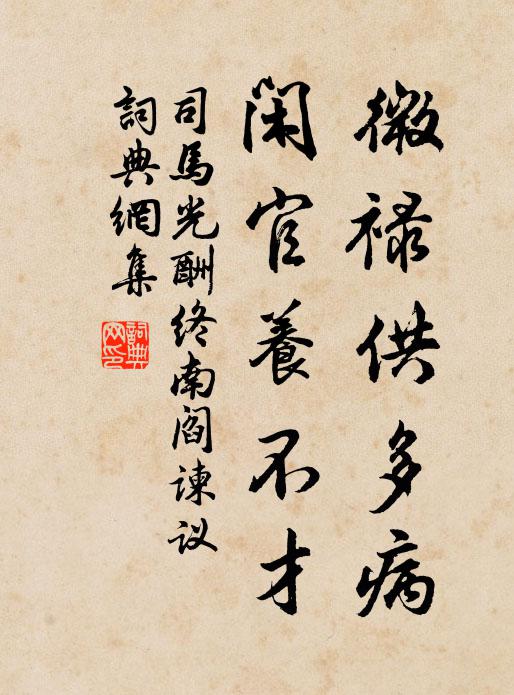 微禄供多病
闲官養不才
司馬光酬终南阎諫议
詞典網集
詞典網印